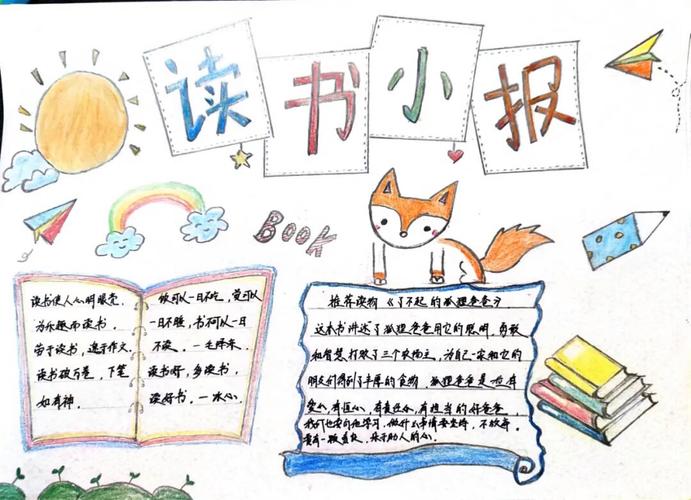 读书小报
BOOK
读书使人心明眼亮.
为乐趣而读书.
苦于读书，逸于作文.
读书破万卷，下笔
如有神.
饭可以一日不吃，觉可以
一日不睡，书不可以一日
不读. 一毛泽东.
读书好，多读书，
读好书. 一冰心.
推荐读物《了不起的狐狸爸爸》
这本书讲述了狐狸爸爸用它的聪明，勇敢
和智慧，打败了三个农场主，为自己一家和它的
朋友们得到了丰厚的食物，狐狸爸爸是一位有
爱心，有恒心，有责任心，有担当的好爸爸，
我们也要向他学习，做什么事情要坚持，不放弃，
要有一颗善良，乐于助人的心.